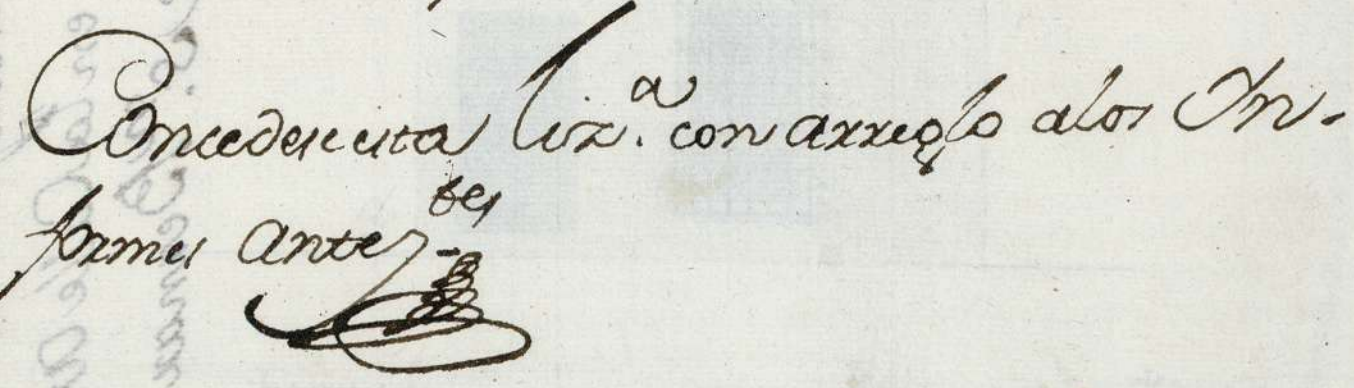 Concedese esta Liz.ª con arreglo a los In-
formes antez.tes